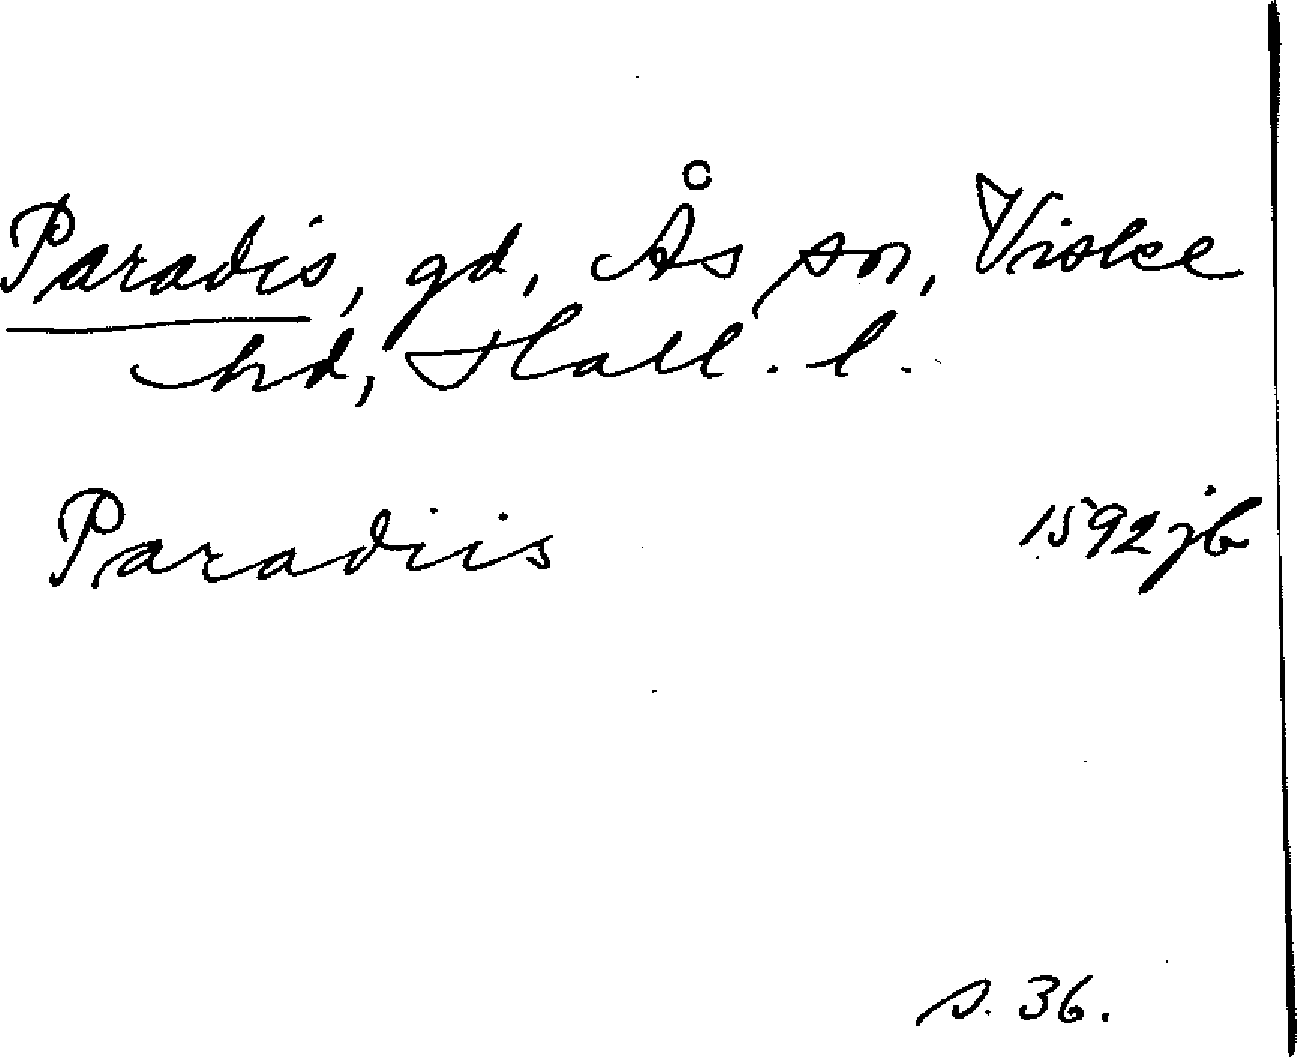 Paradis, gd, Ås sn, Viske
hd, Hall. l.
Paradiis 1592 jb
s. 36.